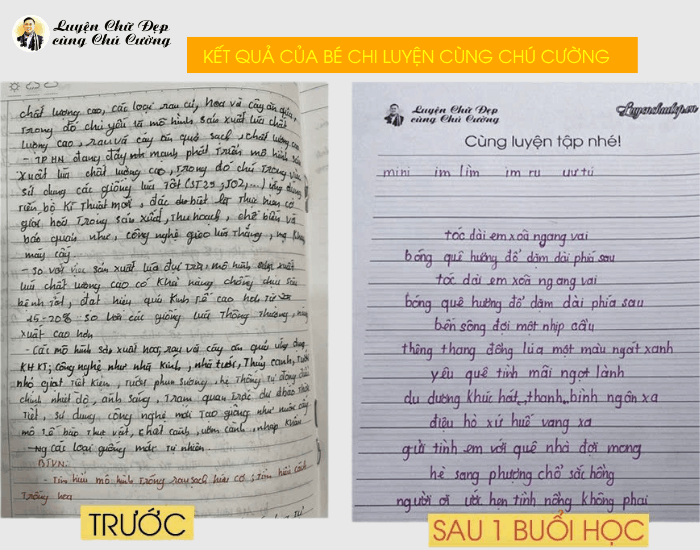 Luyện Chữ Đẹp
cùng Chú Cường
KẾT QUẢ CỦA BÉ CHI LUYỆN CÙNG CHÚ CƯỜNG
chất lượng cao, các loại rau củ, hoa và cây ăn quả,
trong đó chủ yếu là mô hình sản xuất lúa chất
lượng cao, rau và cây ăn quả sạch, chất lượng cao
- TP HN đang đẩy mạnh phát triển mô hình sản
xuất lúa chất lượng cao, trong đó chú trọng
sử dụng các giống lúa tốt (ST25, J02,...) ứng dụng
tiến bộ kĩ thuật mới, đặc biệt là thực hiện cơ
giới hoá trong sản xuất, thu hoạch, chế biến và
bảo quản như, công nghệ gieo lúa thẳng,
máy cấy.
- So với sản xuất lúa đại trà, mô hình sản xuất
lúa chất lượng cao có khả năng chống chịu sâu
bệnh tốt, đạt hiệu quả kinh tế cao hơn từ
15-20% so với các giống lúa thông thường,
xuất cao hơn
- Các mô hình sản xuất hoa, rau và cây ăn quả ứng dụng
KHKT; công nghệ như nhà kính, nhà lưới, thuỷ canh, tưới
nhỏ giọt tiết kiệm, tưới phun sương, hệ thống tự động điều
chỉnh nhiệt độ, ánh sáng, trạm quan trắc dự báo thời
tiết, sử dụng công nghệ mới tạo giống như nuôi cấy
mô tế bào thực vật, chiết cành, ươm cành, nhập khẩu
- Ng các loại giống mắc tự nhiên
BTVN:
- Tìm hiểu mô hình trồng rau sạch hữu cơ, tìm hiểu cách
trồng hoa
TRƯỚC
Luyện Chữ Đẹp
cùng Chú Cường
Luyenchudep.vn
Cùng luyện tập nhé!
mi ni im lìm im ru ưu tú
tóc dài em xoã ngang vai
bóng quê hương đổ dặm dài phía sau
tóc dài em xoã ngang vai
bóng quê hương đổ dặm dài phía sau
bến sông đợi một nhịp cầu
thênh thang đồng lúa một màu ngát xanh
yêu quê tính mãi ngọt lành
du dương khúc hát, thanh bình ngân xa
điệu hò xứ huế vang xa
gửi tình em với quê nhà đợi mong
hè sang phượng chở sắc hồng
người ơi ước hẹn tình nồng không phai
SAU 1 BUỔI HỌC